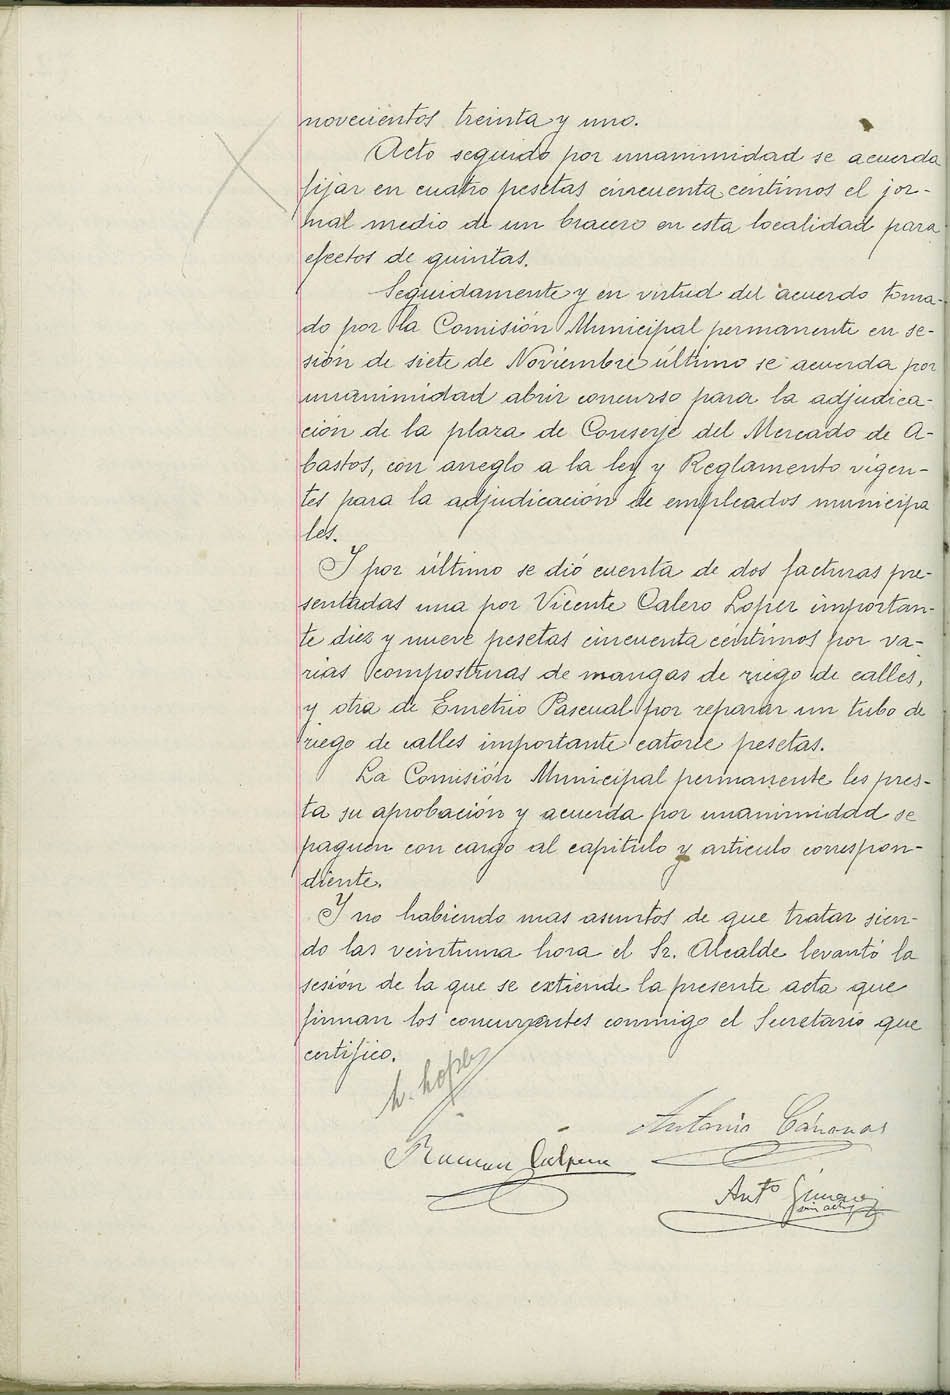 novecientos treinta y uno.
Acto seguido por unanimidad se acuerda
fijar en cuatro pesetas cincuenta céntimos el jor-
nal medio de un bracero en esta localidad para
efectos de quintas.
Seguidamente y en virtud del acuerdo toma-
do por la Comisión Municipal permanente en se-
sión de siete de Noviembre último se acuerda por
unanimidad abrir concurso para la adjudica-
ción de la plaza de Conserje del Mercado de A-
bastos, con arreglo a la ley y Reglamento vigen-
tes para la adjudicación de empleados municipa
les.
Y por último se dió cuenta de dos facturas pre-
sentadas una por Vicente Calero Lopez importan-
te diez y nueve pesetas cincuenta céntimos por va-
rias composturas de mangas de riego de calles,
y otra de Emetrio Pascual por reparar un tubo de
riego de calles importante catorce pesetas.
La Comisión Municipal permanente les pres-
ta su aprobación y acuerda por unanimidad se
paguen con cargo al capitulo y articulo correspon-
diente.
Y no habiendo mas asuntos de que tratar sien-
do las veintiuna hora el Sr. Alcalde levantó la
sesión de la que se extiende la presente acta que
firman los concurrentes conmigo el Secretario que
certifico.
Antonio Cánovas
Ramon
Antº Gimenez